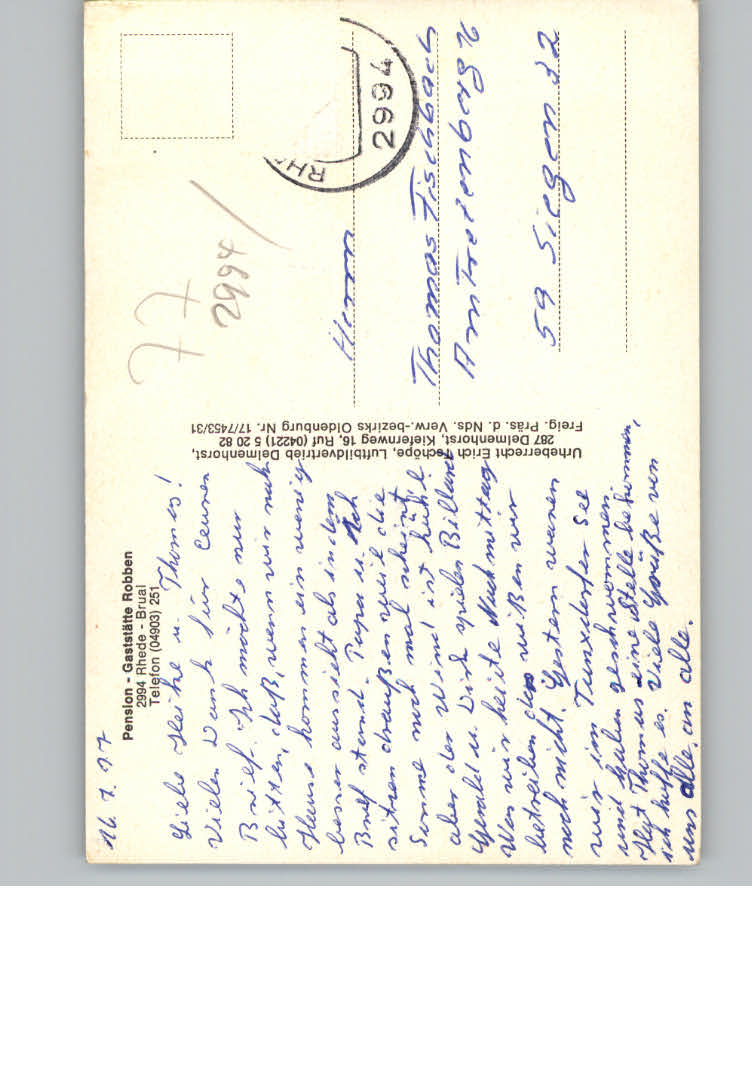 16.7.77
Pension - Gaststätte Robben
2994 Rhede - Brual
Telefon (04903) 251
Liebe Heike u. Thomas!
Vielen Dank für Euren
Brief. Ich möchte nur
bitten, daß, wenn wir nach
Hause kommen ein wenig
besser aussieht als in dem
Brief stand. Papa u. Ich
sitzen draußen weil die
Sonne noch mal scheint
aber der Wind ist kühl
Gerald u. Dirk spielen Billard
Was wir heute Nachmittag
betreiben das wißen wir
noch nicht. Gestern waren
wir im Tunxdorfer See
und haben geschwommen.
Hat Thomas eine Stelle bekommen,
ich hoffe es. Viele Grüße von
uns alle, an alle.
Urheberrecht Erich Tschöpe, Luftbildvertrieb Delmenhorst,
287 Delmenhorst, Kiefernweg 16, Ruf (04221) 5 20 82
Freig. Präs. d. Nds. Verw.-bezirks Oldenburg Nr. 17/7453/31
77
2994
RH
2994
Herrn
Thomas Tischbach
Am Tretenberg 16
59 Siegen 32